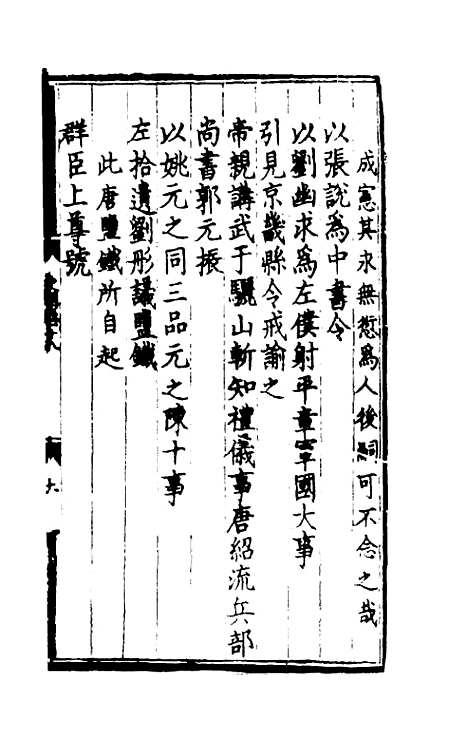 成憲其永無愆爲人後嗣可不念之哉
以張說爲中書令
以劉幽求爲左僕射平章軍國大事
引見京畿縣令戒諭之
帝親講武于驪山斬知禮儀事唐紹流兵部
尚書郭元振
以姚元之同三品元之陳十事
左拾遺劉彤議鹽鐵
此唐鹽鐵所自起
群臣上尊號